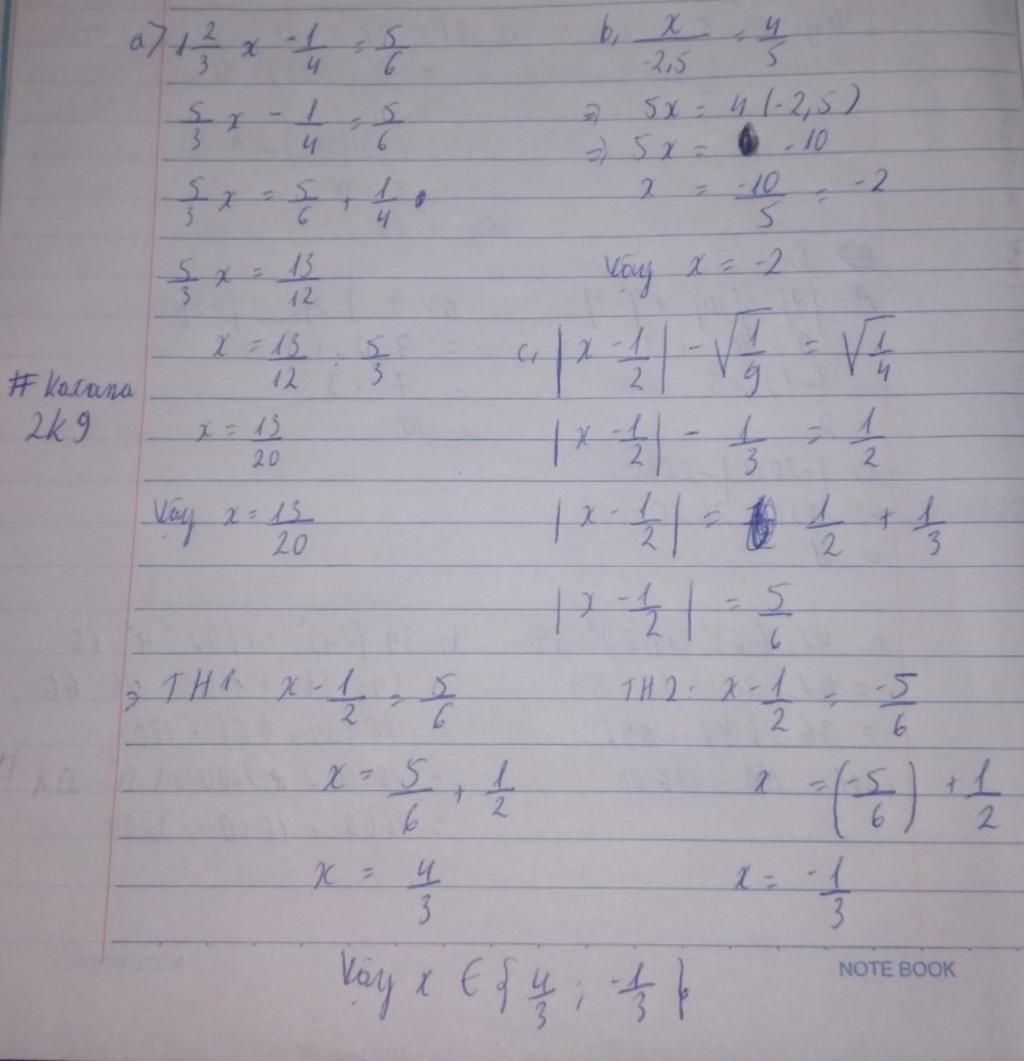 a) 1 2/3 x - 1/4 = 5/6
5/3 x - 1/4 = 5/6
5/3 x = 5/6 + 1/4
5/3 x = 13/12
x = 13/12 : 5/3
x = 13/20
Vậy x = 13/20
# Kasana
2k9
b, x/-2,5 = 4/5
=> 5x = 4(-2,5)
=> 5x = -10
x = -10/5 = -2
Vậy x = -2
c, |x - 1/2| - √1/9 = √1/4
|x - 1/2| - 1/3 = 1/2
|x - 1/2| = 1/2 + 1/3
|x - 1/2| = 5/6
=> TH1: x - 1/2 = 5/6
x = 5/6 + 1/2
x = 4/3
TH2: x - 1/2 = -5/6
x = (-5/6) + 1/2
x = -1/3
Vậy x ∈ {4/3 ; -1/3}
NOTE BOOK